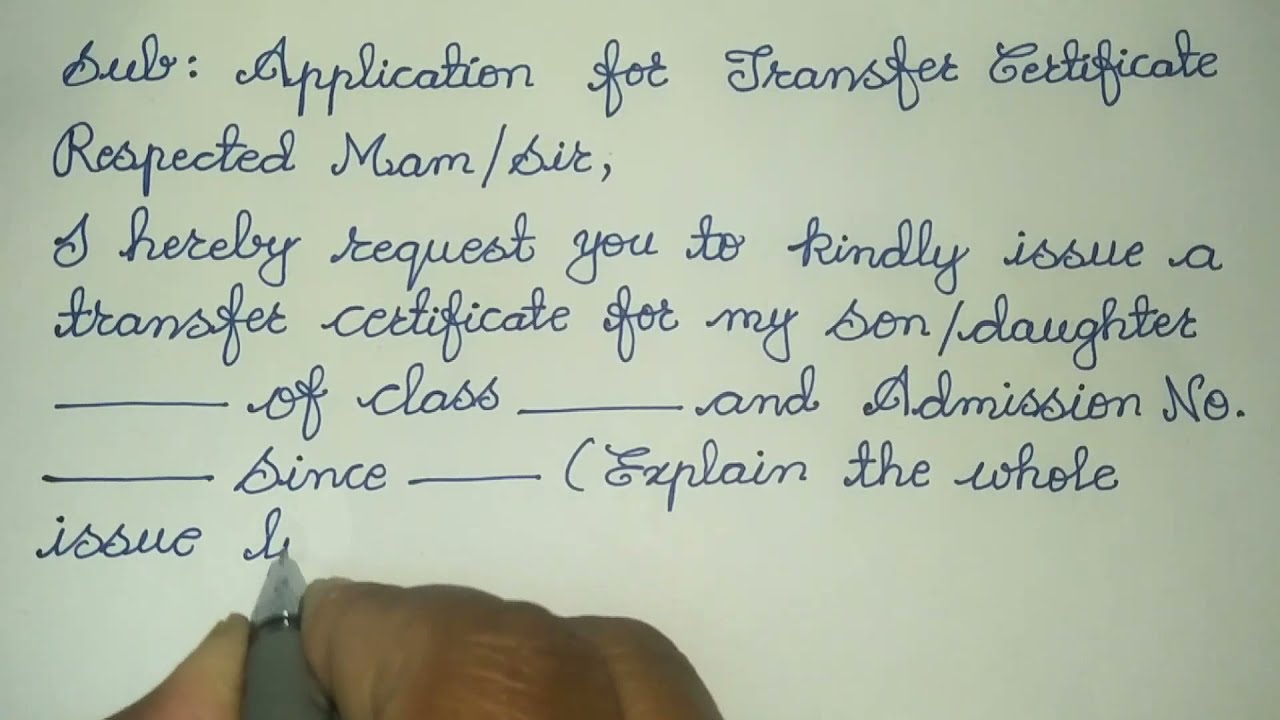 Sub: Application for Transfer Certificate
Respected Mam/Sir,
I hereby request you to kindly issue a
transfer certificate for my son/daughter
______ of class ______ and Admission No.
______ since ______ (Explain the whole
issue